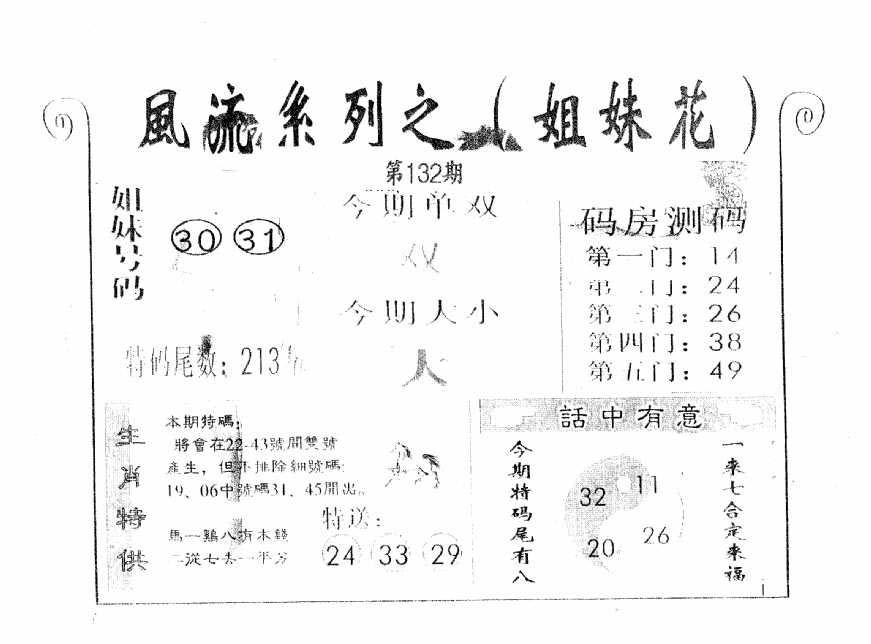 風流系列之（姐妹花）
第132期
姐妹号码
30 31
今期单双
双
今期大小
大
特码尾数：213
码房测码
第一门：14
第二门：24
第三门：26
第四门：38
第五门：49
生肖特供
本期特碼：
將會在22-43號間雙號
產生，但不排除細號碼
19、06中號碼31、45開出。
馬一鷄八有木錢
特送：
24 33 29
話中有意
今期特码尾有八
32 11
20 26
一来七合定来福